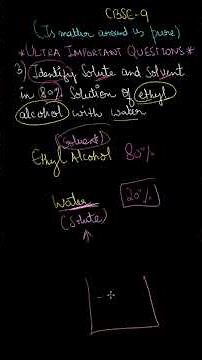 CBSE-9
(Is matter around us pure)
*ULTRA IMPORTANT QUESTIONS*
3) Identify Solute and Solvent
in 80% Solution of ethyl
alcohol with water
(Solvent)
Ethyl Alcohol 80%
Water 20%
(Solute)